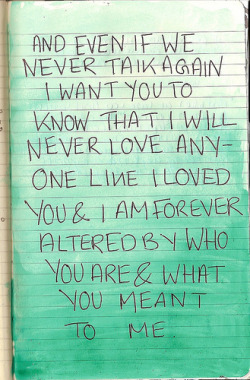 AND EVEN IF WE
NEVER TALK AGAIN
I WANT YOU TO
KNOW THAT I WILL
NEVER LOVE ANY-
ONE LIKE I LOVED
YOU & I AM FOREVER
ALTERED BY WHO
YOU ARE & WHAT
YOU MEANT
TO ME.